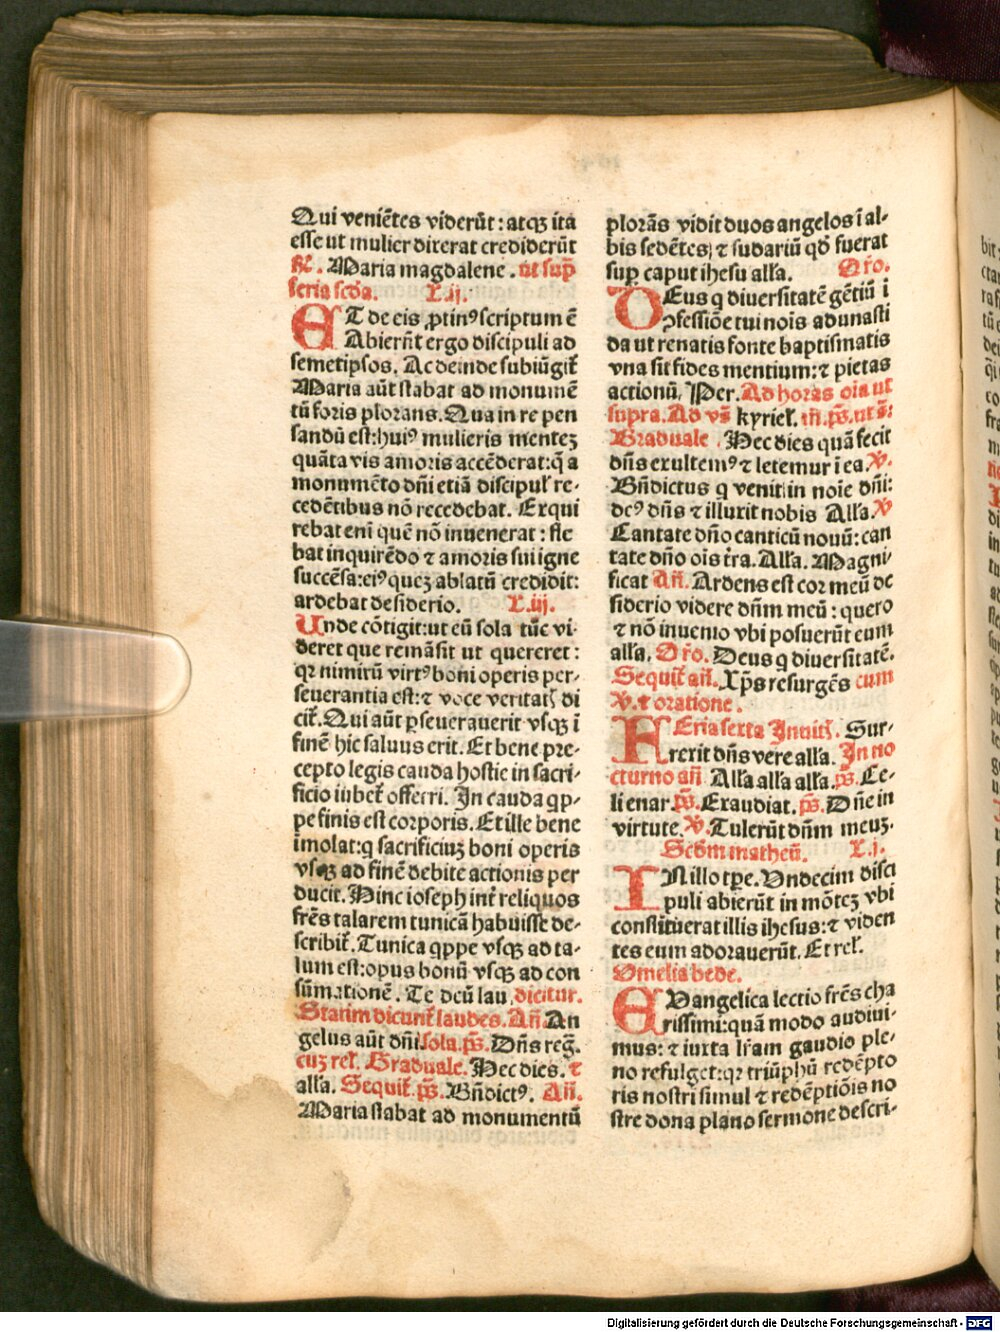 Qui veniẽtes viderũt : atqꝫ ita
esse ut mulier dixerat crediderũt
R̃. Maria magdalene . ut sup̃
feria scḋa. L.ij.
ET de eis ꝓtinꝰ scriptum ẽ
Abierũt ergo discipuli ad
semetipsos. Ac deinde subiũgit̃
Maria aũt stabat ad monumẽ
tũ foris plorans. Qua in re pen
sandũ est: huiꝰ mulieris menteꝫ
quãta vis amoris accẽderat: q̃ a
monumẽto dñi etiã discipul̛ re-
cedẽtibus nõ recedebat. Exqui
rebat eni quẽ nõ inuenerat : fle
bat inquirẽdo ⁊ amoris sui igne
succẽsa: eiꝰ queꝫ ablatũ credidit:
ardebat desiderio. L.iij.
Unde cõtigit: ut eũ sola tũc vi-
deret que remãsit ut quereret :
qꝛ nimirũ virtꝰ boni operis per-
seuerantia est: ⁊ voce veritatꝭ di
cit̃. Qui aũt ꝑseuerauerit vsqꝫ ĩ
finẽ hic saluus erit. Et bene pre-
cepto legis cauda hostie in sacri-
ficio iubet̃ offerri. In cauda qp-
pe finis est corporis. Et ille bene
imolat: q sacrificiuꝫ boni operis
vsqꝫ ad finẽ debite actionis per
ducit. Hinc ioseph int̃ reliquos
frẽs talarem tunicã habuisse de-
scribit̃. Tunica qppe vsqꝫ ad ta-
lum est: opus bonũ vsqꝫ ad con
sũmationẽ. Te deũ lau. dicitur.
Statim dicunt̃ laudes. Añ. An
gelus aũt dñi sola. p̃s. Dñs reg̃.
cuꝫ rel̛. Graduale. Hec dies. ⁊
all̛a. Sequit̃ p̃s. Bñdictꝰ. Añ.
Maria stabat ad monumentũ
plorãs vidit duos angelos ĩ al-
bis sedẽtes; ⁊ sudariũ qḋ fuerat
suꝑ caput ihesu all̛a. Oro.
DEus q diuersitatẽ gẽtiũ ĩ
ꝯfessiõe tui nois adunasti
da ut renatis fonte baptismatis
vna sit fides mentium: ⁊ pietas
actionũ. Per. Ad horas oia ut
supra. Ad vs̃ kyriel̛. m̃. p̃s. ut s̃:
Graduale . Hec dies quã fecit
dñs exultemꝰ ⁊ letemur ĩ ea. V̛.
Bñdictus q venit in noie dñi:
deꝰ dñs ⁊ illuxit nobis All̛a. V̛
Cantate dño canticũ nouũ: can
tate dño ois tr̃a. All̛a. Magni-
ficat Añ. Ardens est cor meũ de
siderio videre dñm meũ : quero
⁊ nõ inuenio vbi posuerũt eum
all̛a. Oro. Deus q diuersitatẽ.
Sequit̃ añ. Xp̃s resurgẽs cum
V̛. ⁊ oratione.
FEria sexta Inuitꝭ. Sur-
rexit dñs vere all̛a. In no
cturno añ All̛a all̛a all̛a. p̃s. Ce-
li enar. p̃s. Exaudiat. p̃s. Dñe in
virtute. V̛. Tulerũt dñm meuꝫ.
Scḋm matheũ. L.j.
IN illo tp̃e. Undecim disci
puli abierũt in mõteꝫ vbi
constituerat illis ihesus: ⁊ viden
tes eum adorauerũt. Et rel̛.
Omelia bede.
EVangelica lectio frẽs cha
rissimi: quã modo audiui-
mus: ⁊ iuxta lr̃am gaudio ple-
no refulget: qꝛ triũphũ redẽpto
ris nostri simul ⁊ redẽptiõis no
stre dona plano sermone descri-
Digitalisierung gefördert durch die Deutsche Forschungsgemeinschaft - DFG